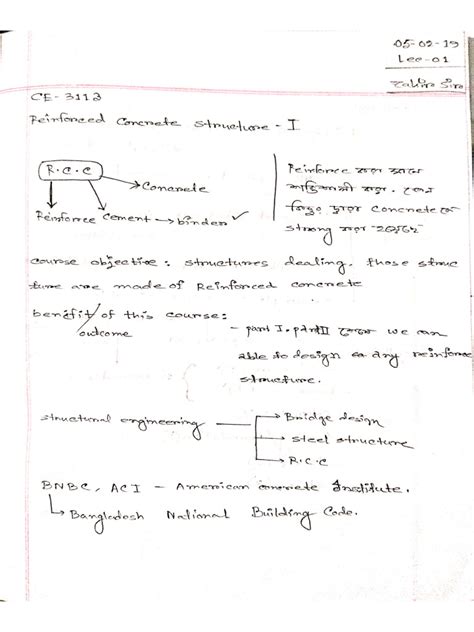 05-02-19
Lec-01
Zahir Sir
CE-3112
Reinforced Concrete Structure - I
R.C.C
Concrete
Reinforce Cement → binder ✓
Reinforce করা মানে
শক্তিশালী করা.
কিছু দ্বারা concrete কে
strong করা
course objective: structures dealing. those struc
ture are made of Reinforced concrete
benefit of this course:
outcome
- part I. part II we can
able to design any reinforce
structure.
structural engineering
Bridge design
steel structure
R.C.C
BNBC, ACI - American concrete Institute.
Bangladesh National Building Code.